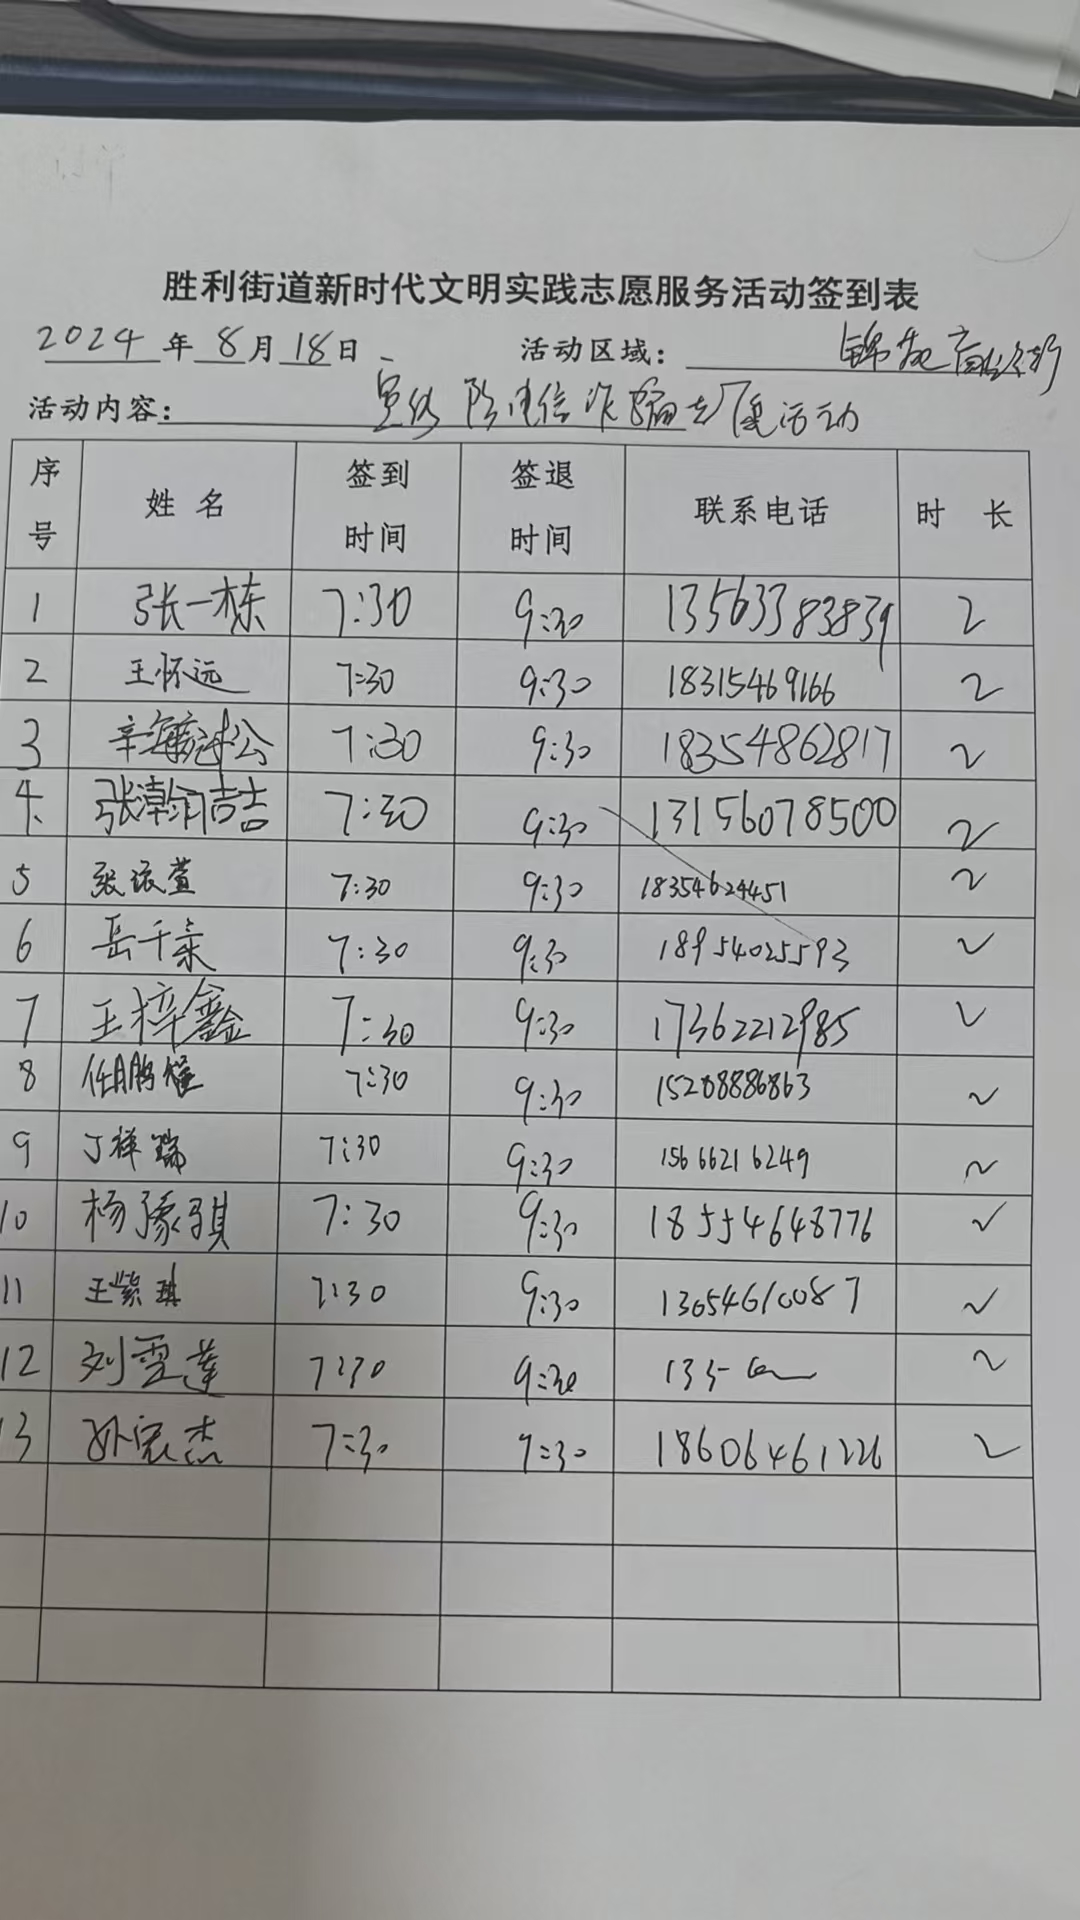 胜利街道新时代文明实践志愿服务活动签到表
2024年8月18日 活动区域: 锦苑商业街
活动内容: 防电信诈骗志愿活动
序号 姓名 签到时间 签退时间 联系电话 时长
1 张一栋 7:30 9:30 13563383839 2
2 王怀远 7:30 9:30 18315469166 2
3 7:30 9:30 18354862817 2
4 张瀚喆 7:30 9:30 13156078500 2
5 张宸萱 7:30 9:30 18354624451 2
6 岳千桑 7:30 9:30 18954025593 2
7 王梓鑫 7:30 9:30 17362212985 2
8 任鹏 7:30 9:30 15208886863 2
9 丁祥瑞 7:30 9:30 15666216249 2
10 杨豫骐 7:30 9:30 18554648776 2
11 王紫琪 7:30 9:30 13654610087 2
12 刘雪莲 7:30 9:30 135 2
13 孙宏杰 7:30 9:30 18606461226 2